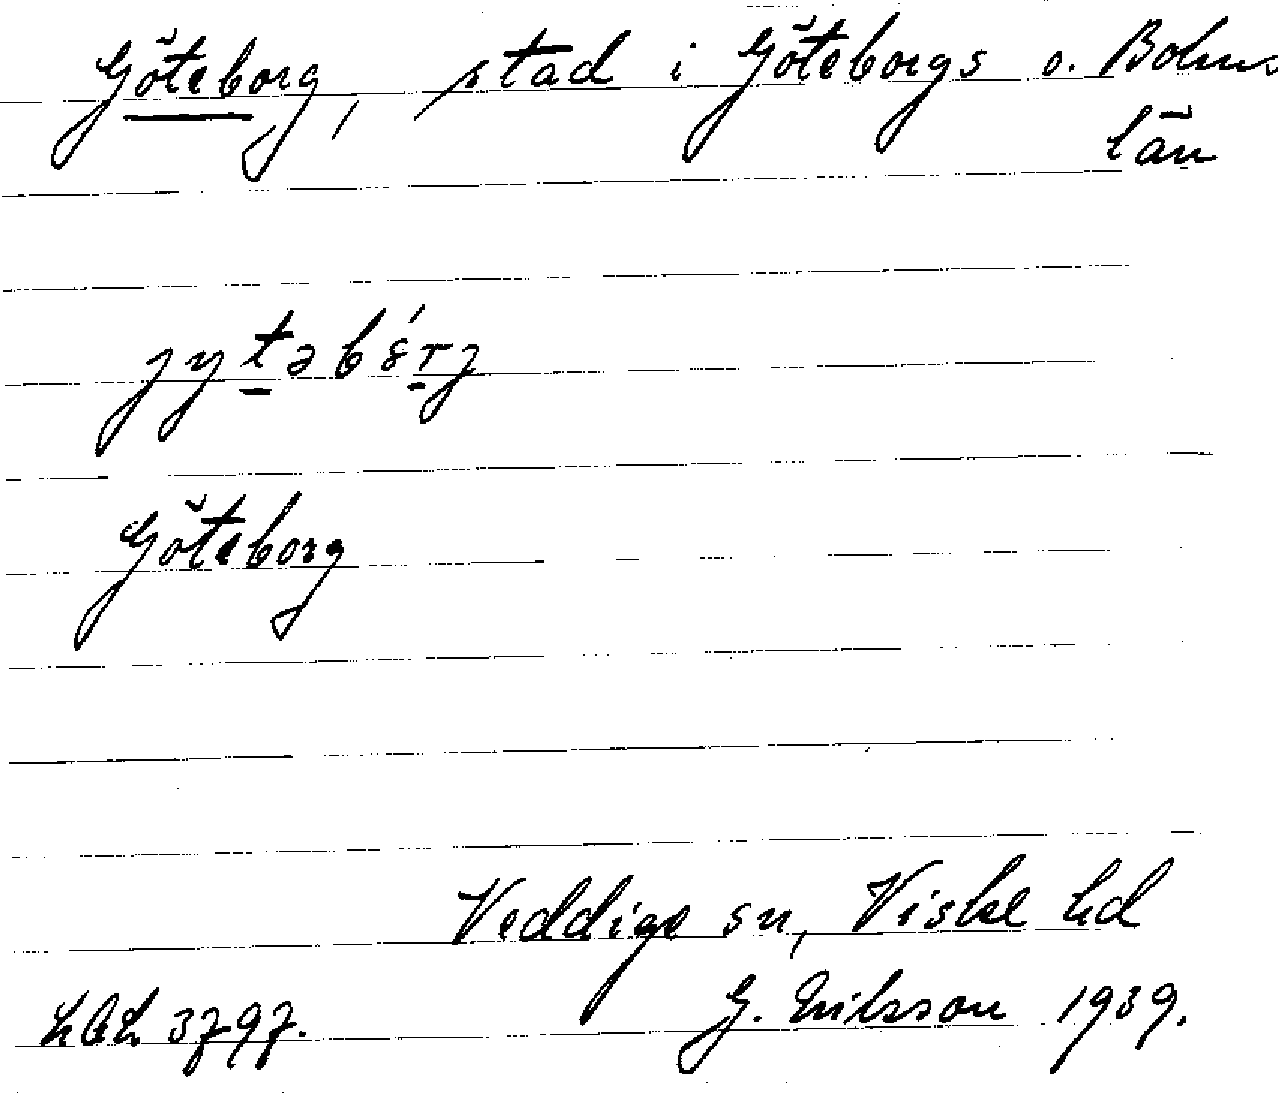 Göteborg, stad i Göteborgs o. Bohus
län
Göteborg
Veddige sn, Viske hd
G. Eriksson 1939.
3797.